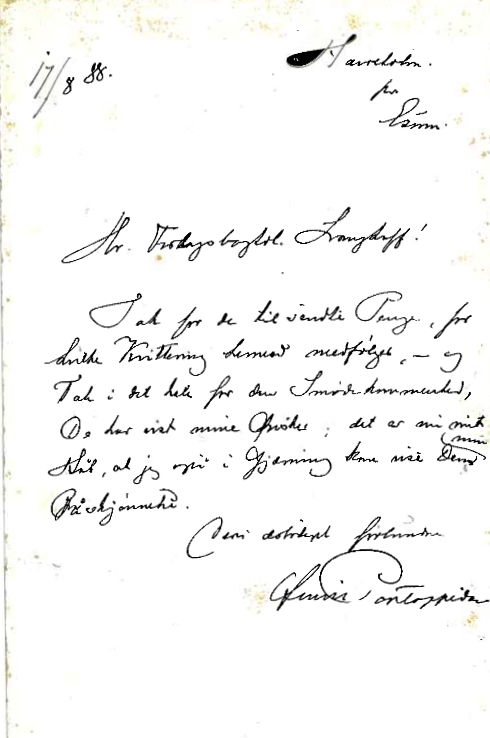 17/8 88.
Havreholm.
pr
Esrum.
Hr. Forlagsboghdl. Langhoff!
Tak for de tilsendte Penge, for
hvilke Kvittering hermed medfølger, – og
Tak i det hele for den Imødekommenhed,
De har vist mine Ønsker; det er nu mit
Håb, at jeg også i Gjerning kan vise Dem min
Påskjønnelse.
Deres ærbødigst forbundne
Henrik Pontoppidan